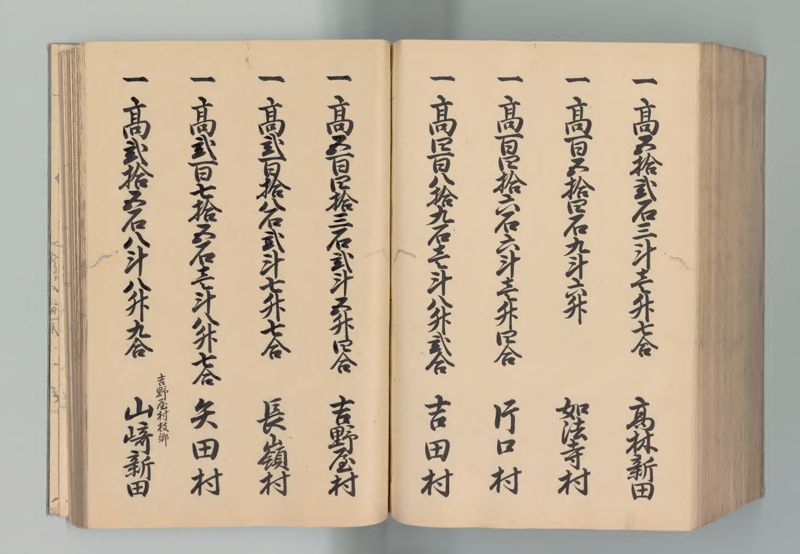 一 高五拾弐石三斗壱升七合 高林新田
一 高百五拾四石九斗六升 如法寺村
一 高百四拾六石六斗壱升四合 片口村
一 高四百八拾九石壱斗八升弐合 吉田村
一 高五百四拾三石弐斗五升四合 吉野屋村
一 高弐百拾八石弐斗七升七合 長嶺村
一 高弐百七拾五石壱斗八升七合 矢田村
吉野屋村枝郷
一 高弐拾五石八斗八升九合 山崎新田